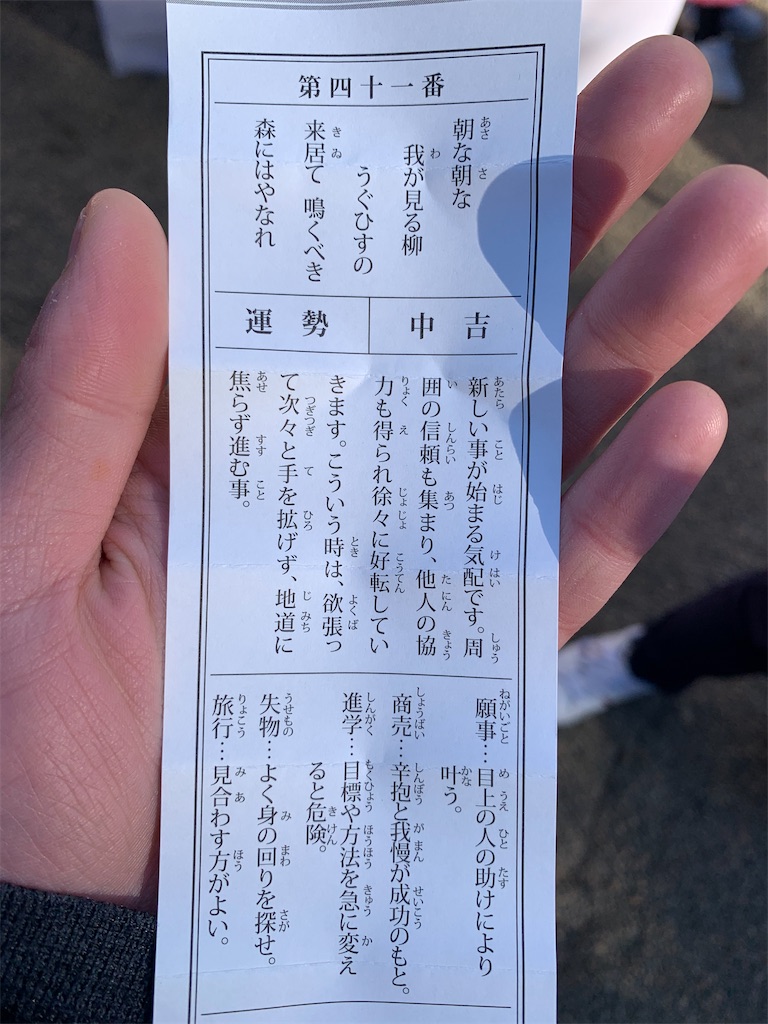 第四十一番
朝な朝な
我が見る柳
うぐひすの
来居て 鳴くべき
森にはやなれ
中吉
運勢
新しい事が始まる気配です。周
囲の信頼も集まり、他人の協
力も得られ徐々に好転してい
きます。こういう時は、欲張っ
て次々と手を拡げず、地道に
焦らず進む事。
願事…目上の人の助けにより
叶う。
商売…辛抱と我慢が成功のもと。
進学…目標や方法を急に変え
ると危険。
失物…よく身の回りを探せ。
旅行…見合わす方がよい。